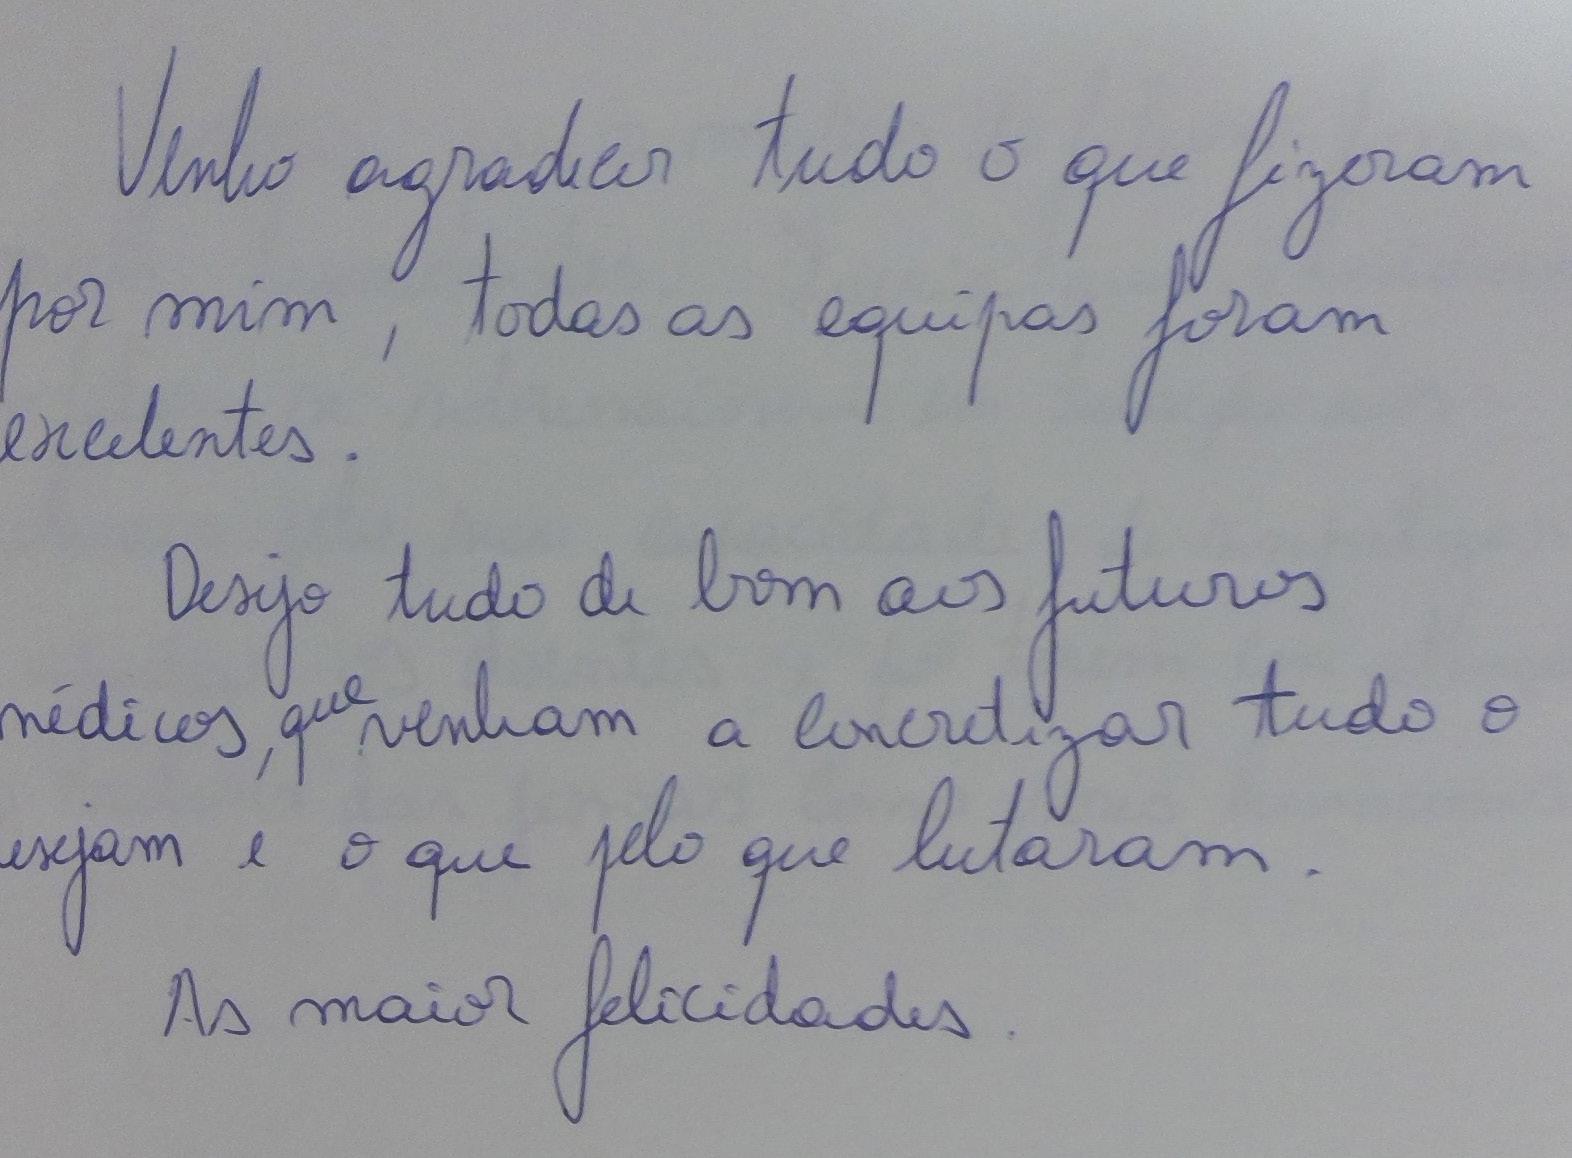 Venho agradecer tudo o que fizeram
por mim, todas as equipas foram
excelentes.
Desejo tudo de bom aos futuros
médicos, que venham a concretizar tudo o
esejam e o que pelo que lutaram.
As maior felicidades.